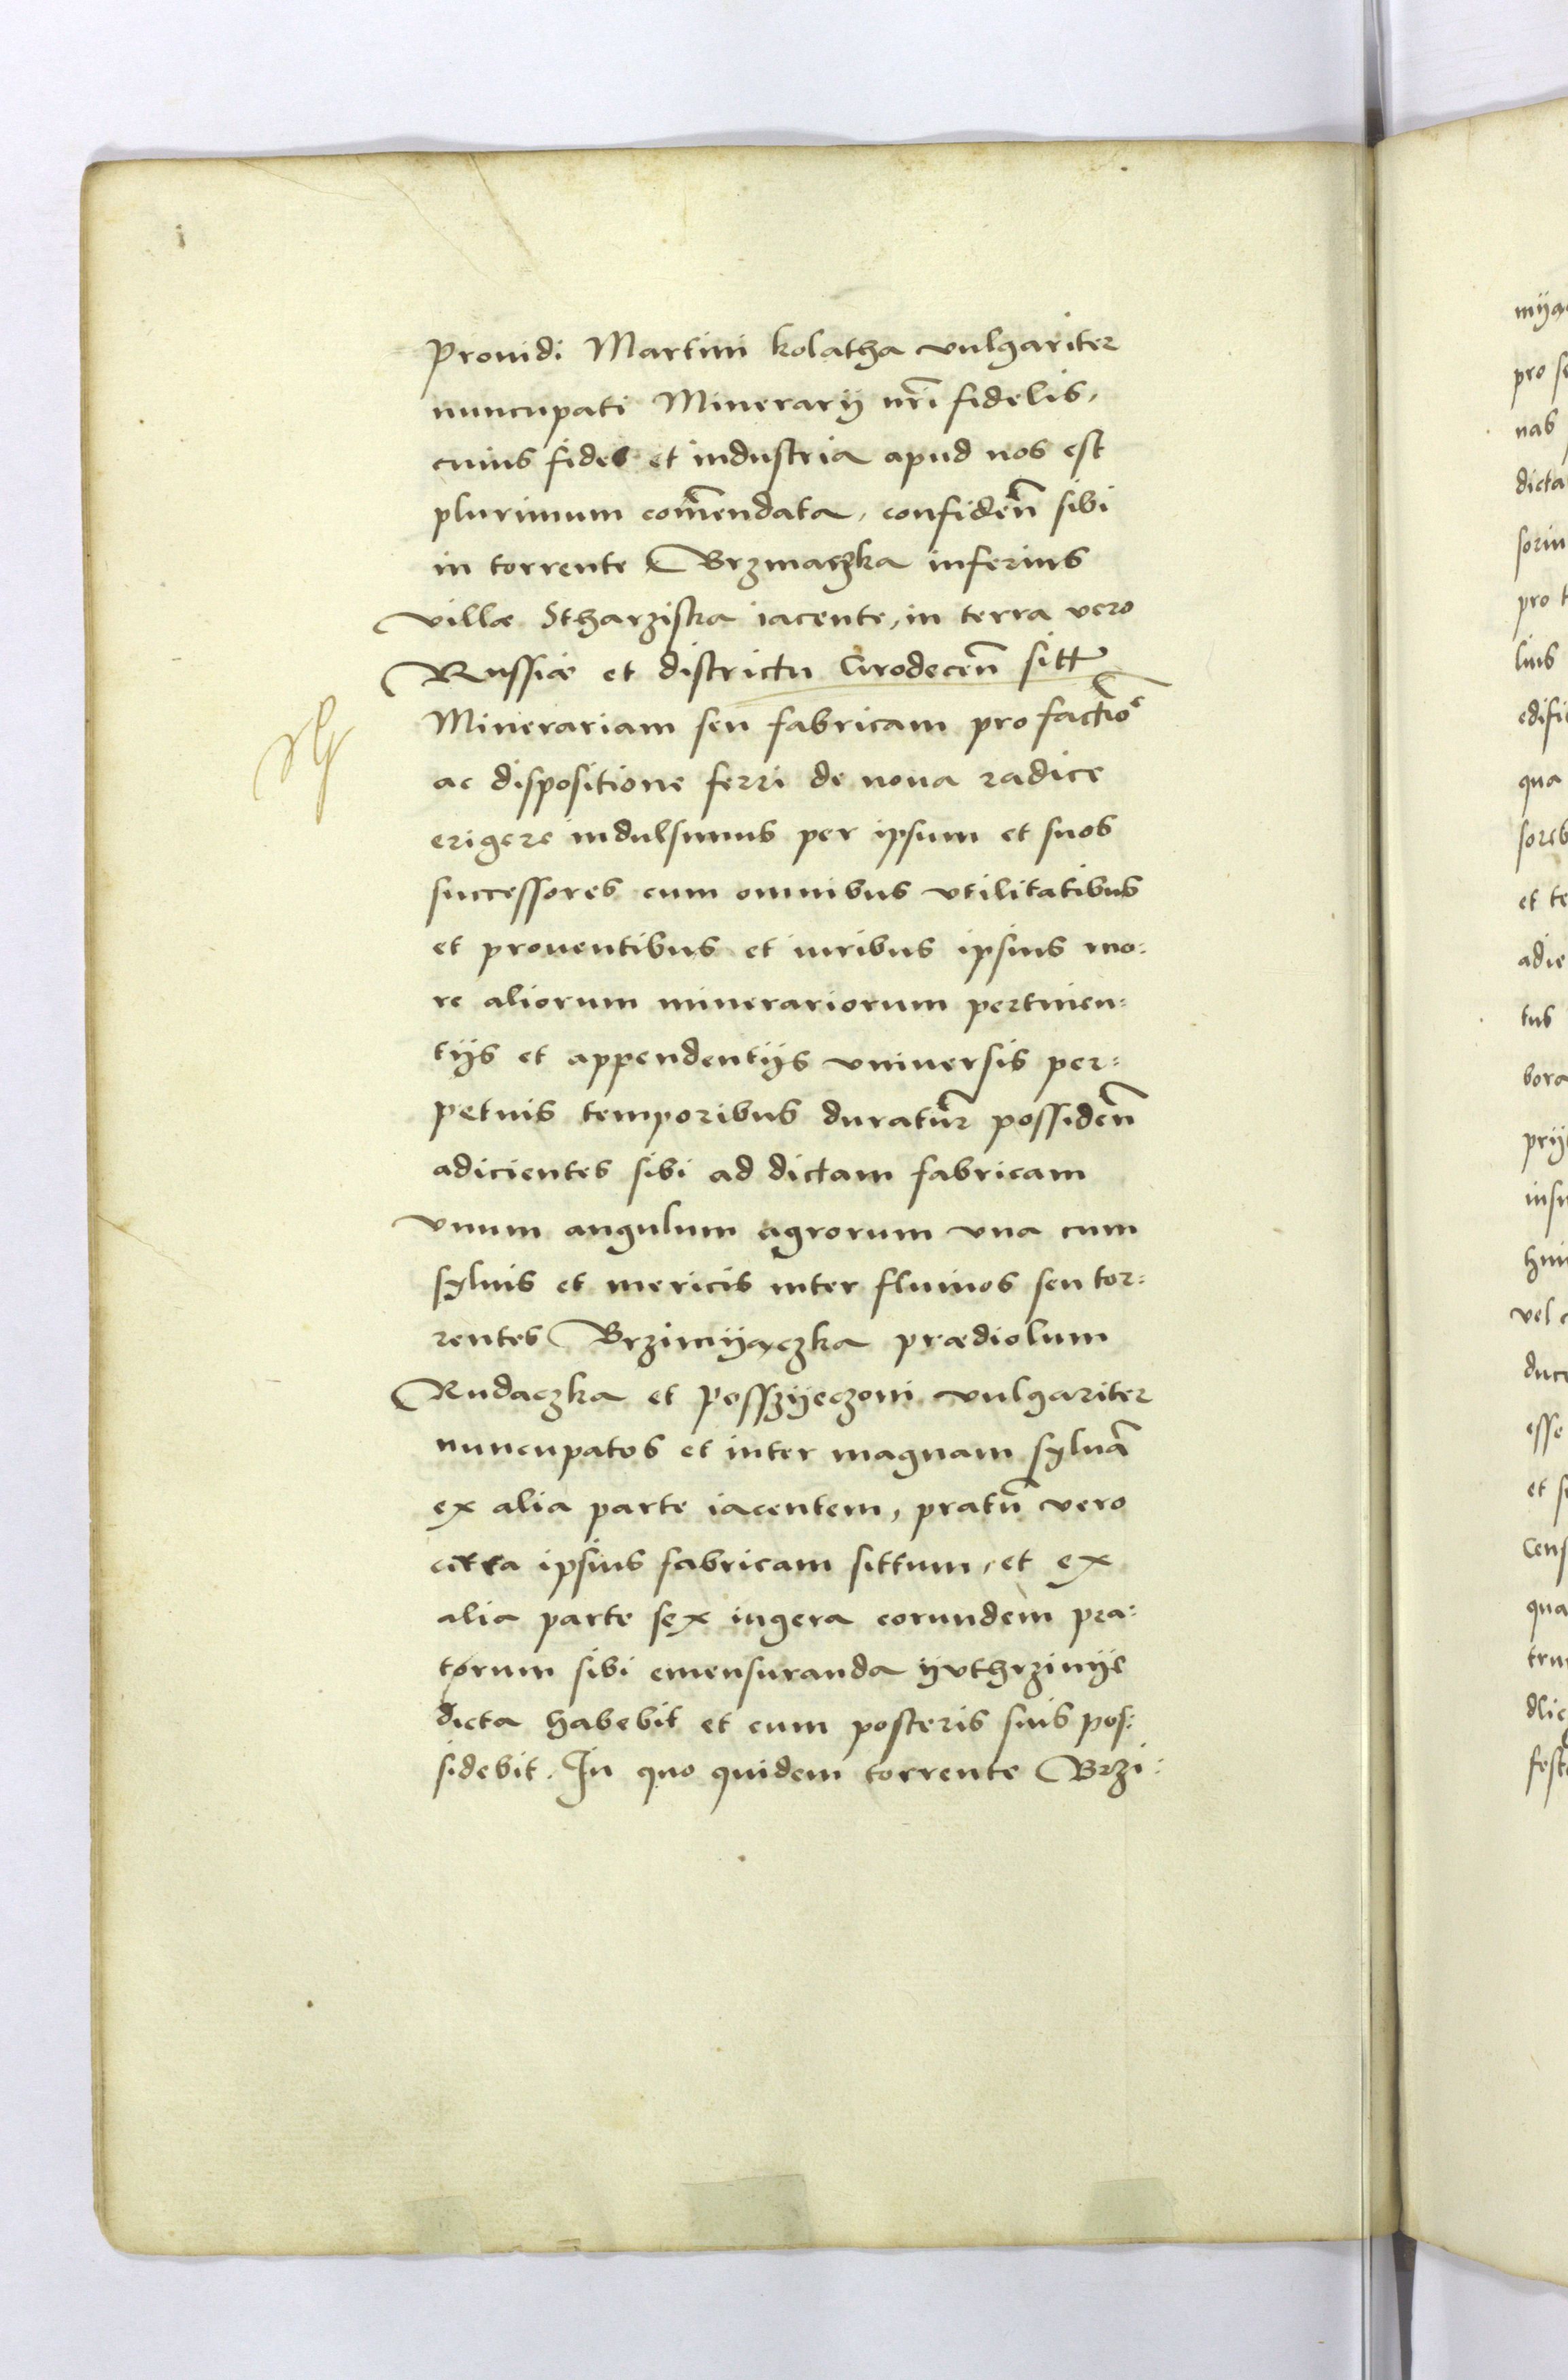 Prouidi Martini kolatha vulgariter
nuncupati Minerarij nr̃i fidelis,
cuius fides et industria apud nos est
plurimum com̃endata, confideñ sibi
in torrente Brzmaczka inferius
villæ Stharziska iacente, in terra vero
Russiæ et districtu Grodeceñ sitt
Minerariam seu fabricam pro factio᷑
ac dispositione ferri de noua radice
erigere indulsimus per ipsum et suos
successores cum omnibus vtilitatibus
et prouentibus et iuribus ipsius mo:
re aliorum minerariorum pertinen:
tijs et appendentijs vniuersis per:
petuis temporibus duratur̃ possideñ
adicientes sibi ad dictam fabricam
vnum angulum agrorum vna cum
syluis et mericis inter fluuios seu tor:
rentes Brzimijaczka prædiolum
Rudaczka et posszijeczoni vulgariter
nuncupatos et inter magnam syluã
ex alia parte iacentem, pratũ vero
citra ipsius fabricam sittum, et ex
alia parte sex iugera eorundem pra:
torum sibi emensuranda ijvthrzinije
dicta habebit et cum posteris suis pos:
sidebit. In quo quidem torrente Brzi:
pro
nas
dicta
pro
lius
qua
et
tus
vel
esse
et